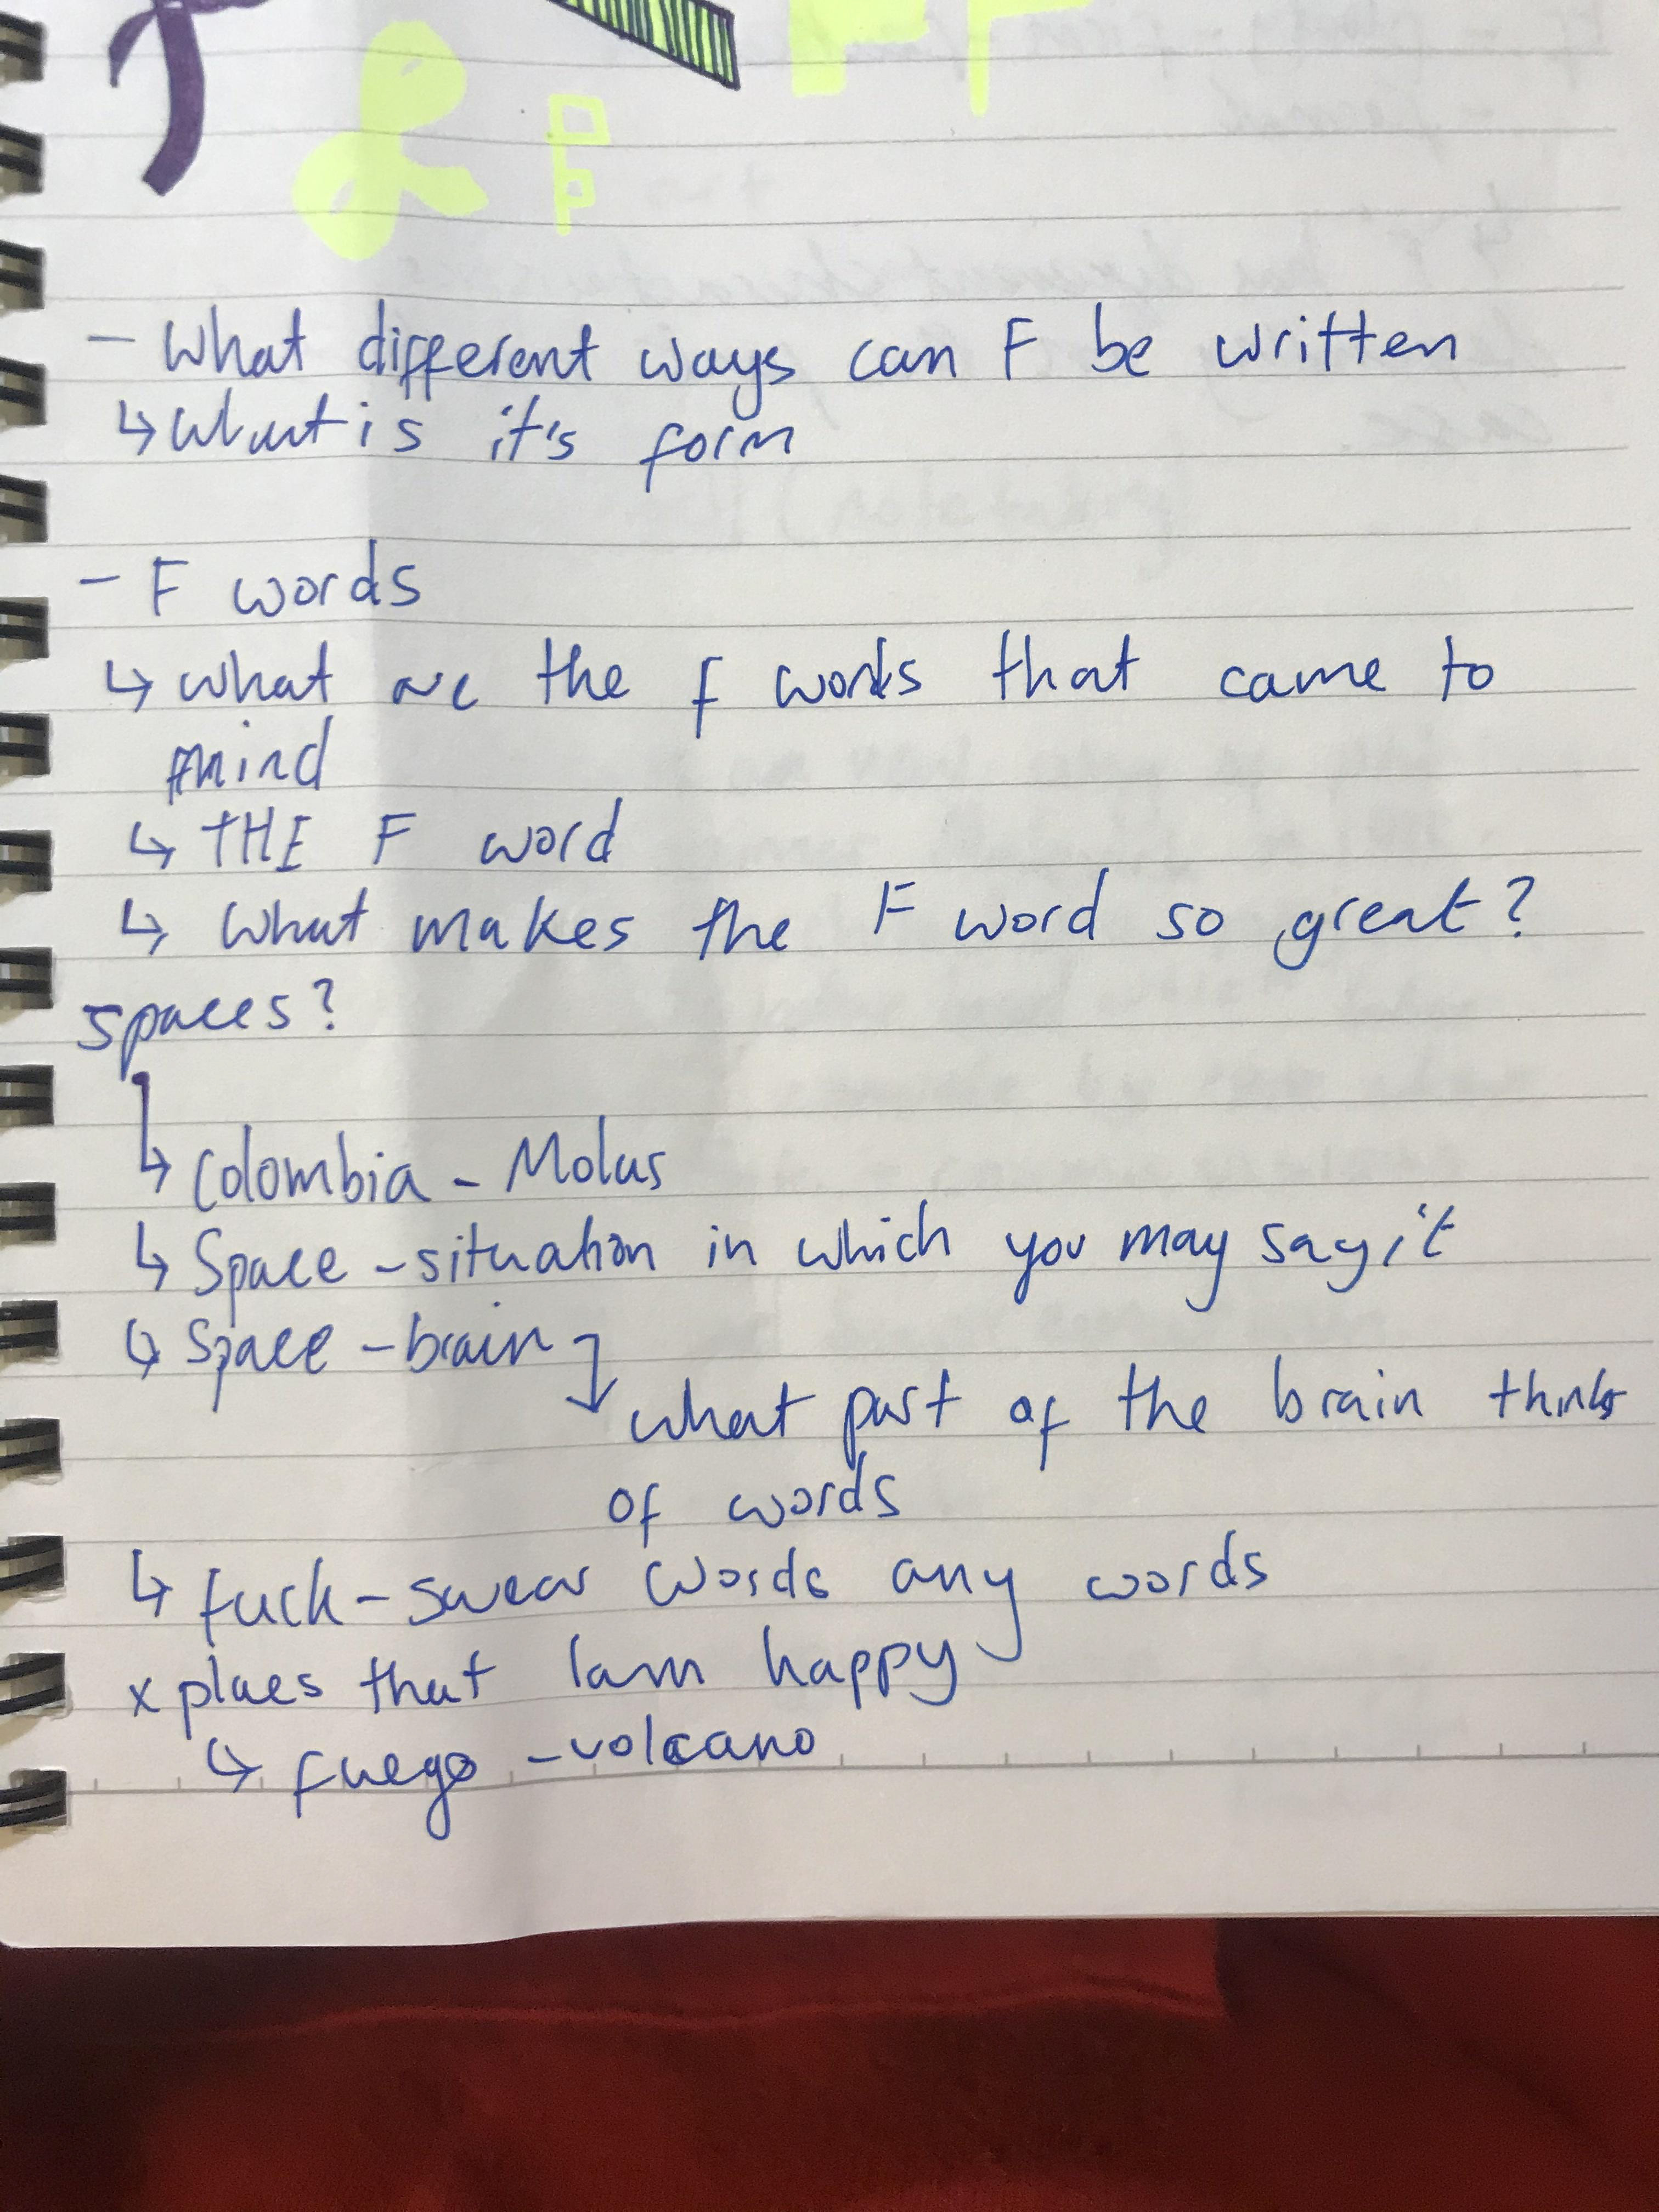 - What different ways can F be written
↳ What is it's form
- F words
↳ what are the f words that came to
mind
↳ THE F word
↳ What makes the F word so great?
spaces?
↳ Colombia - Molas
↳ Space - situation in which you may say it
↳ Space - brain
↓ what part of the brain thinks
of words
↳ fuck - swear words any words
x places that I am happy
↳ fuego - volcano